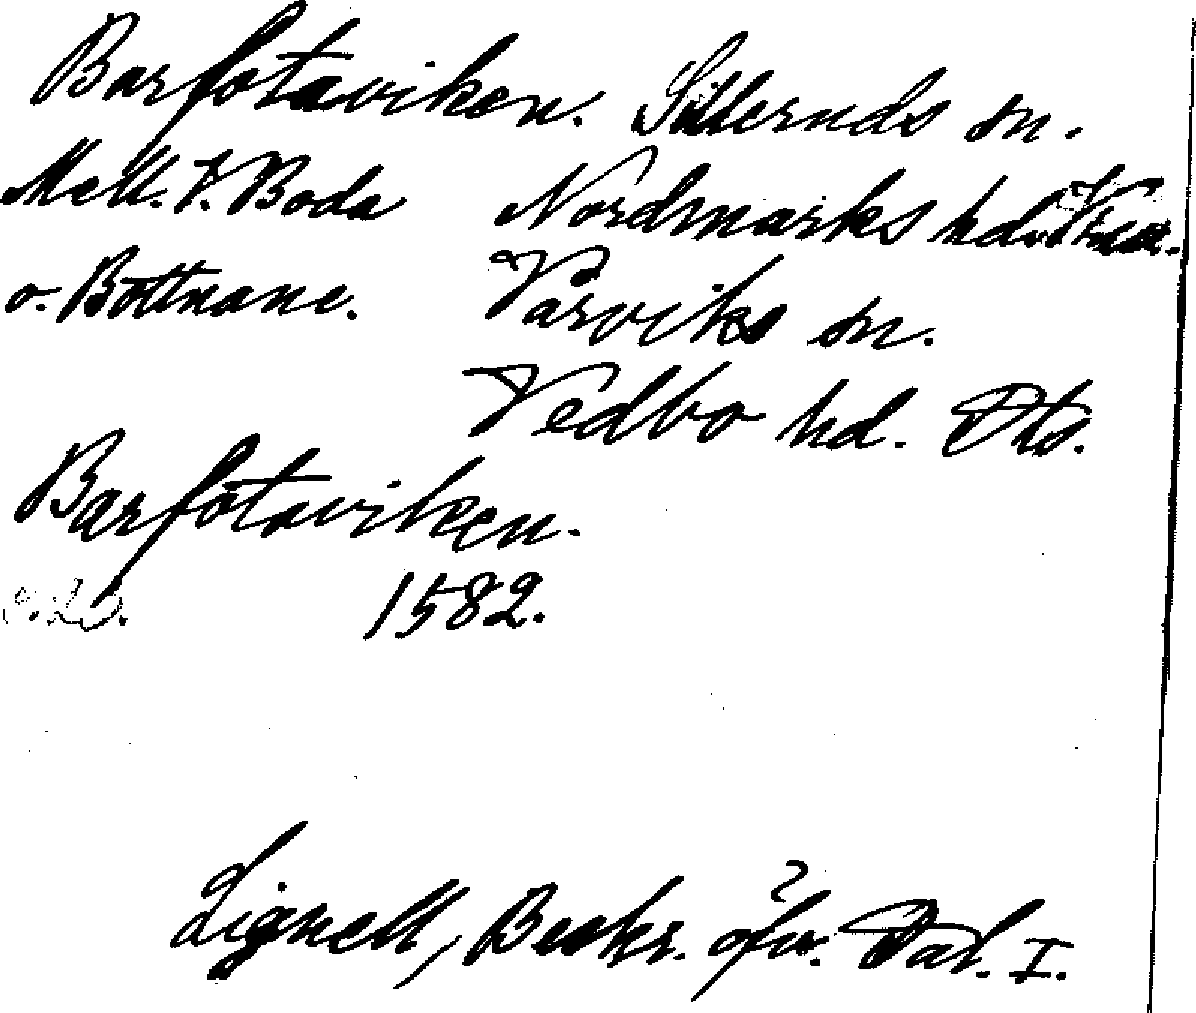 Barfotaviken. Silleruds sn.
Mell. V. Boda Nordmarks hd
o. Bottnane. Vårviks sn.
Vedbo hd. Dls.
Barfotaviken.
1582.
Lignell, Beskr. öfv. Dal. I.